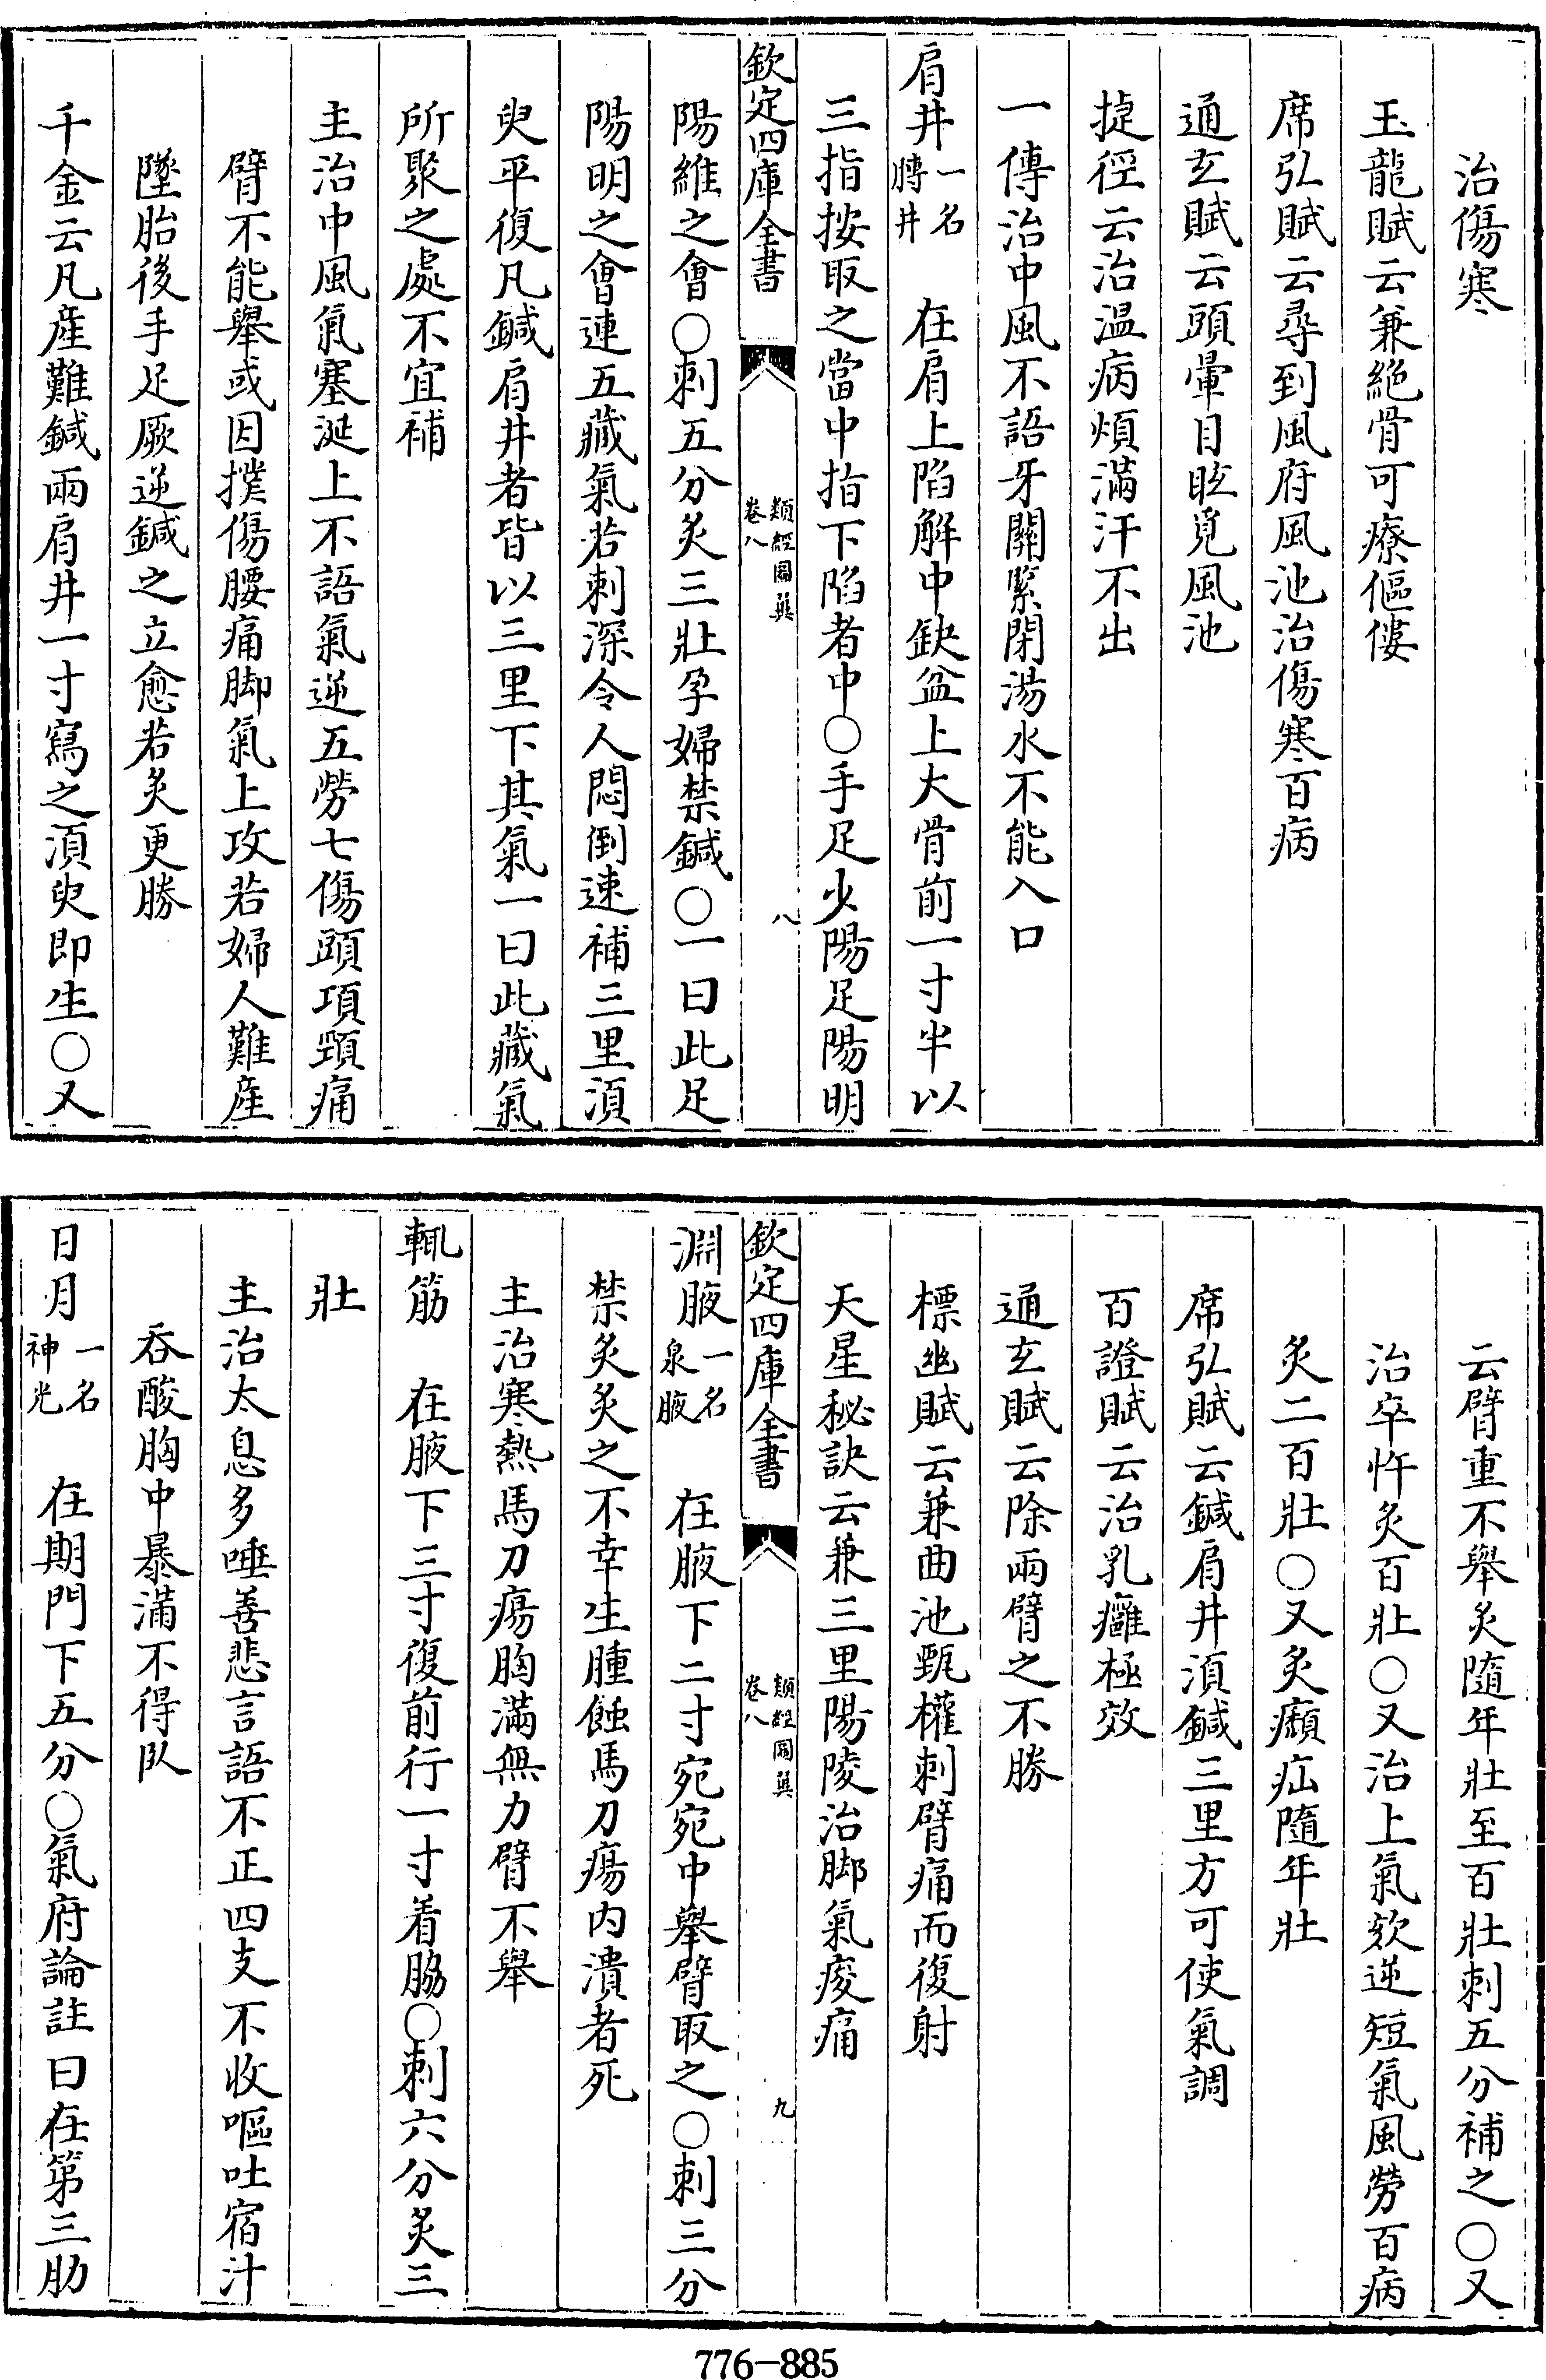 治傷寒
玉龍賦云兼絶骨可療傴僂
席弘賦云尋到風府風池治傷寒百病
通玄賦云頭暈目眩覓風池
捷徑云治温病煩滿汗不出
一傳治中風不語牙關緊閉湯水不能入口
肩井一名膊井 在肩上陷解中缺盆上大骨前一寸半以
三指按取之當中指下陷者中○手足少陽足陽明
欽定四庫全書 類經圖翼卷八 八
陽維之會○刺五分灸三壯孕婦禁鍼○一曰此足
陽明之會連五藏氣若刺深令人悶倒速補三里須
臾平復凡鍼肩井者皆以三里下其氣一曰此藏氣
所聚之處不宜補
主治中風氣塞涎上不語氣逆五勞七傷頭項頸痛
臂不能舉或因撲傷腰痛脚氣上攻若婦人難産
墜胎後手足厥逆鍼之立愈若灸更勝
千金云凡産難鍼兩肩井一寸寫之須臾即生○又
云臂重不舉灸隨年壯至百壯刺五分補之○又
治卒忤灸百壯○又治上氣欬逆短氣風勞百病
灸二百壯○又灸癩疝隨年壯
席弘賦云鍼肩井須鍼三里方可使氣調
百證賦云治乳癰極效
通玄賦云除兩臂之不勝
標幽賦云兼曲池甄權刺臂痛而復射
天星秘訣云兼三里陽陵治脚氣痠痛
欽定四庫全書 類經圖翼卷八 九
淵腋一名泉腋 在腋下二寸宛宛中舉臂取之○刺三分
禁灸灸之不幸生腫蝕馬刀瘍内潰者死
主治寒熱馬刀瘍胸滿無力臂不舉
輒筋 在腋下三寸復前行一寸着脇○刺六分灸三
壯
主治太息多唾善悲言語不正四支不收嘔吐宿汁
吞酸胸中暴滿不得臥
日月一名神光 在期門下五分○氣府論註曰在第三肋
776-885